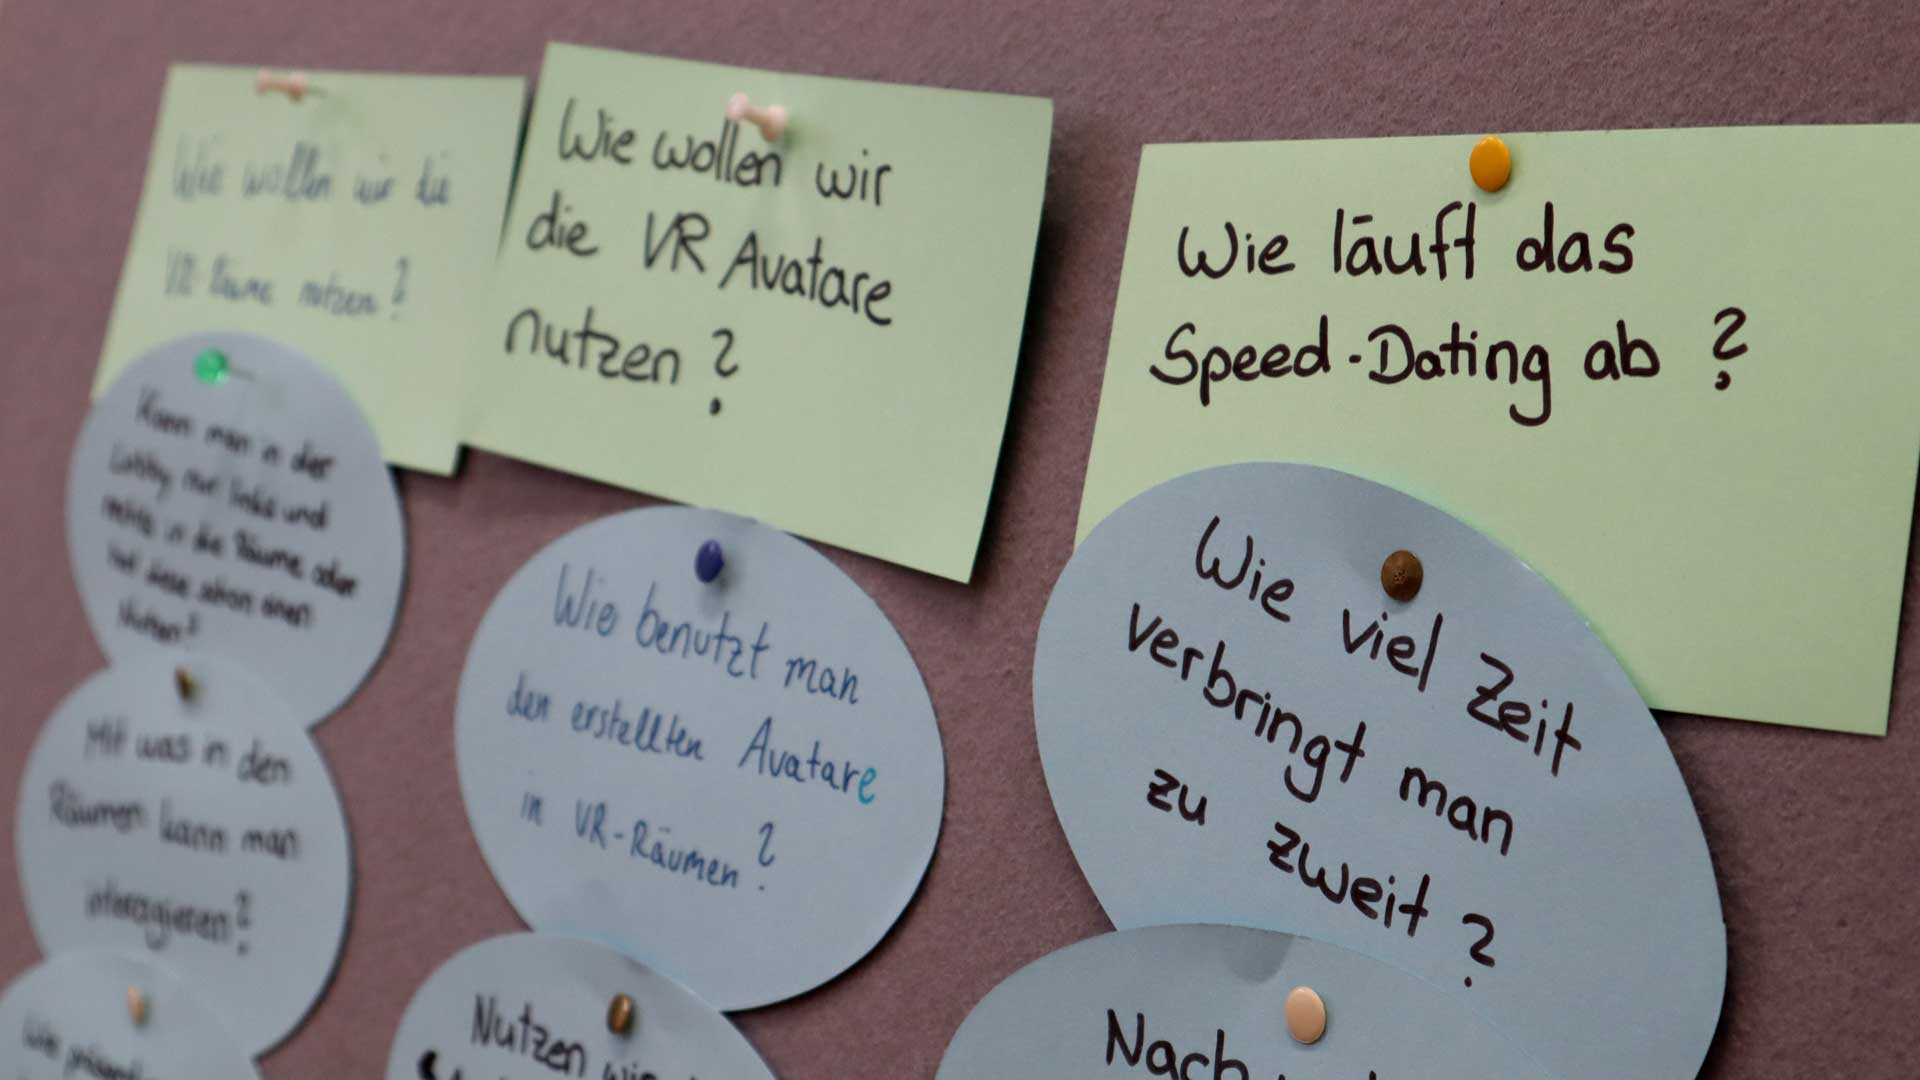 Wie wollen wir die
VR Räume nutzen?
Wie wollen wir
die VR Avatare
nutzen?
Wie läuft das
Speed-Dating ab?
Kann man in der
Lobby nur links und
rechts in die Räume oder
hat diese schon einen
Nutzen?
Mit was in den
Räumen kann man
interagieren?
Wie
Wie benutzt man
den erstellten Avatare
in VR-Räumen?
Nutzen wir
Wie viel Zeit
verbringt man
zu zweit?
Nach